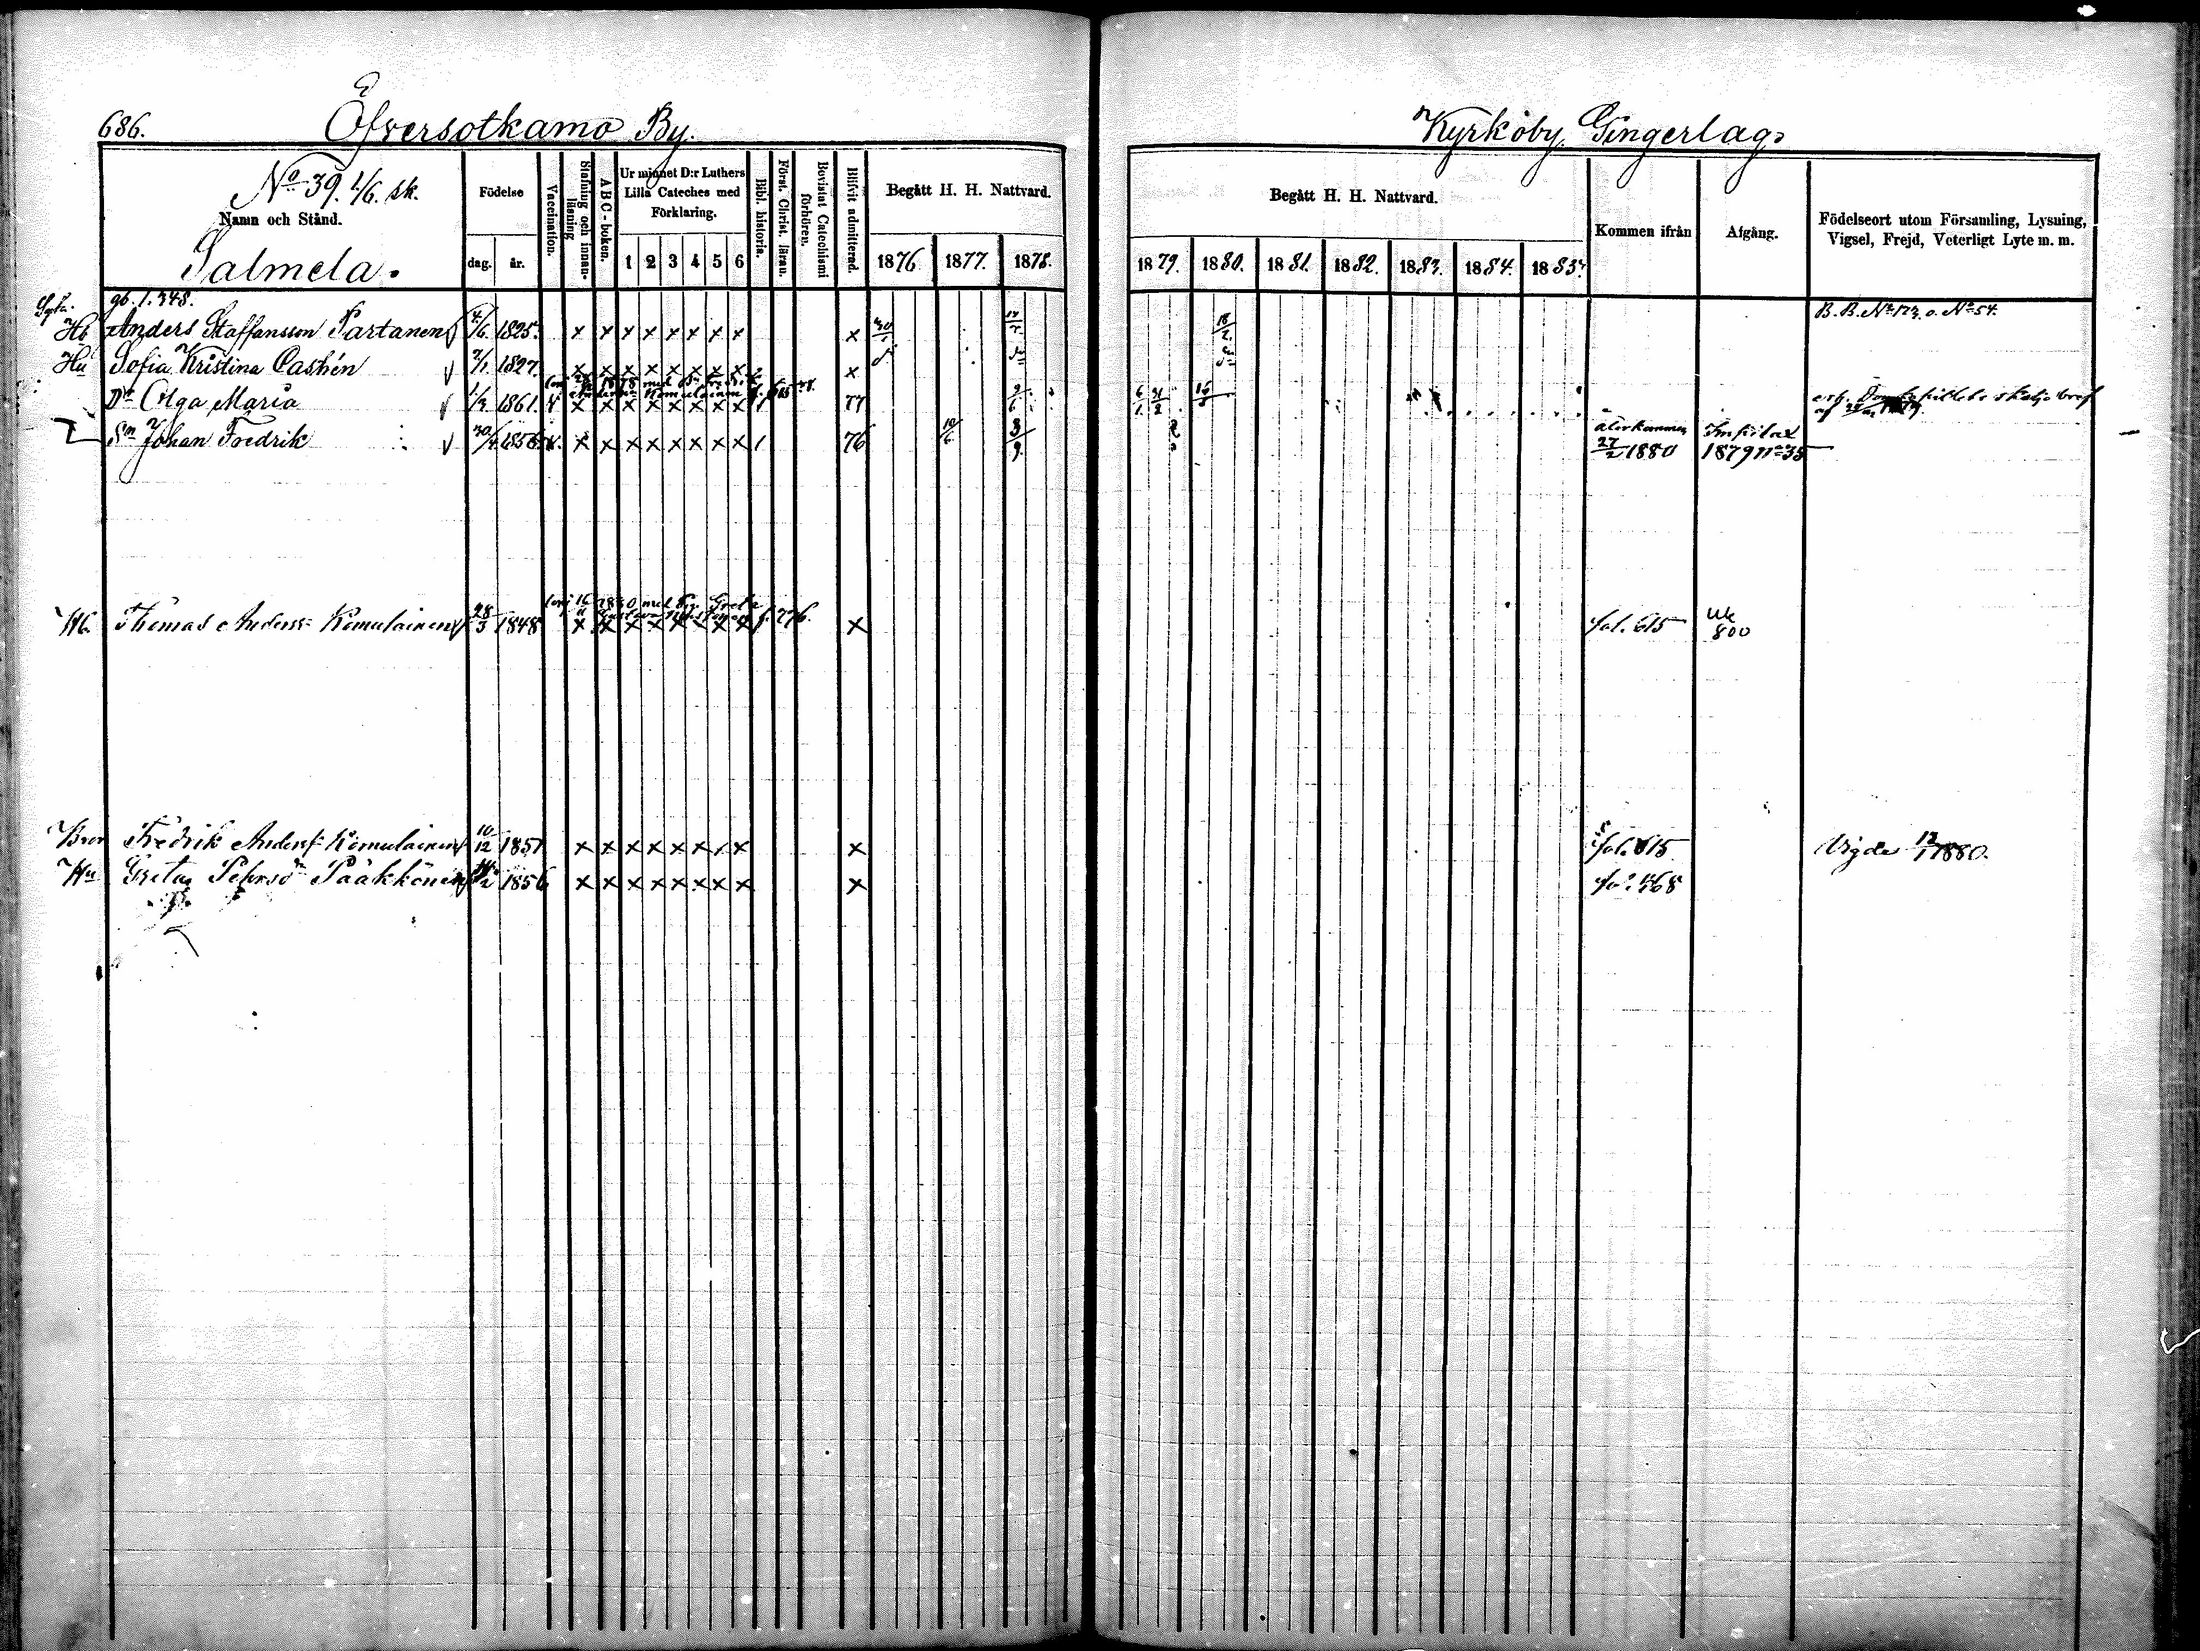 686.
Öfversotkamo By.
Kyrkoby Gingerlag.
No 39. 1/6. sk.
Namn och Stånd.
Salmela.
Födelse
dag. år.
Vaccination.
Stafning och innan-läsning
ABC-boken.
Ur minnet D:r Luthers
Lilla Cateches med
Förklaring.
1 2 3 4 5 6
Bibl. historia.
Först. Christ. läran.
Bevistat Catechismi förhören.
Blifvit admitterad.
Begått H. H. Nattvard.
1876. 1877. 1878.
Begått H. H. Nattvard.
1879. 1880. 1881. 1882. 1883. 1884. 1885.
Kommen ifrån
Afgång.
Födelseort utom Församling, Lysning,
Vigsel, Frejd, Veterligt Lyte m. m.
gb. 1. 348.
Hb Anders Staffansson Partanen 4/6 1825. x x x x x x x x x
B. B. No 173 o. No 54.
Hu Sofia Kristina Castrén 7/1 1827. x x x x x x x x x
Dr Olga Maria 1/3 1861. v x x x x x x x x 1 77
Sn Johan Fredrik 30/4 1856. v. x x x x x x x x 1 76 10/6 3/9
återkommen
27/2 1880
1879 no 35
Hb. Thomas Anderss. Komulainen 28/3 1848 x x x x x x x x x fol. 615 Uk
800
Bror Fredrik Andersf. Komulainen 10/12 1851 x x x x x x x x x fol. 615 Vigde 12/1 1880.
Hu Greta Pehrsdr Pääkkönen 1856 x x x x x x x x x fol. 568